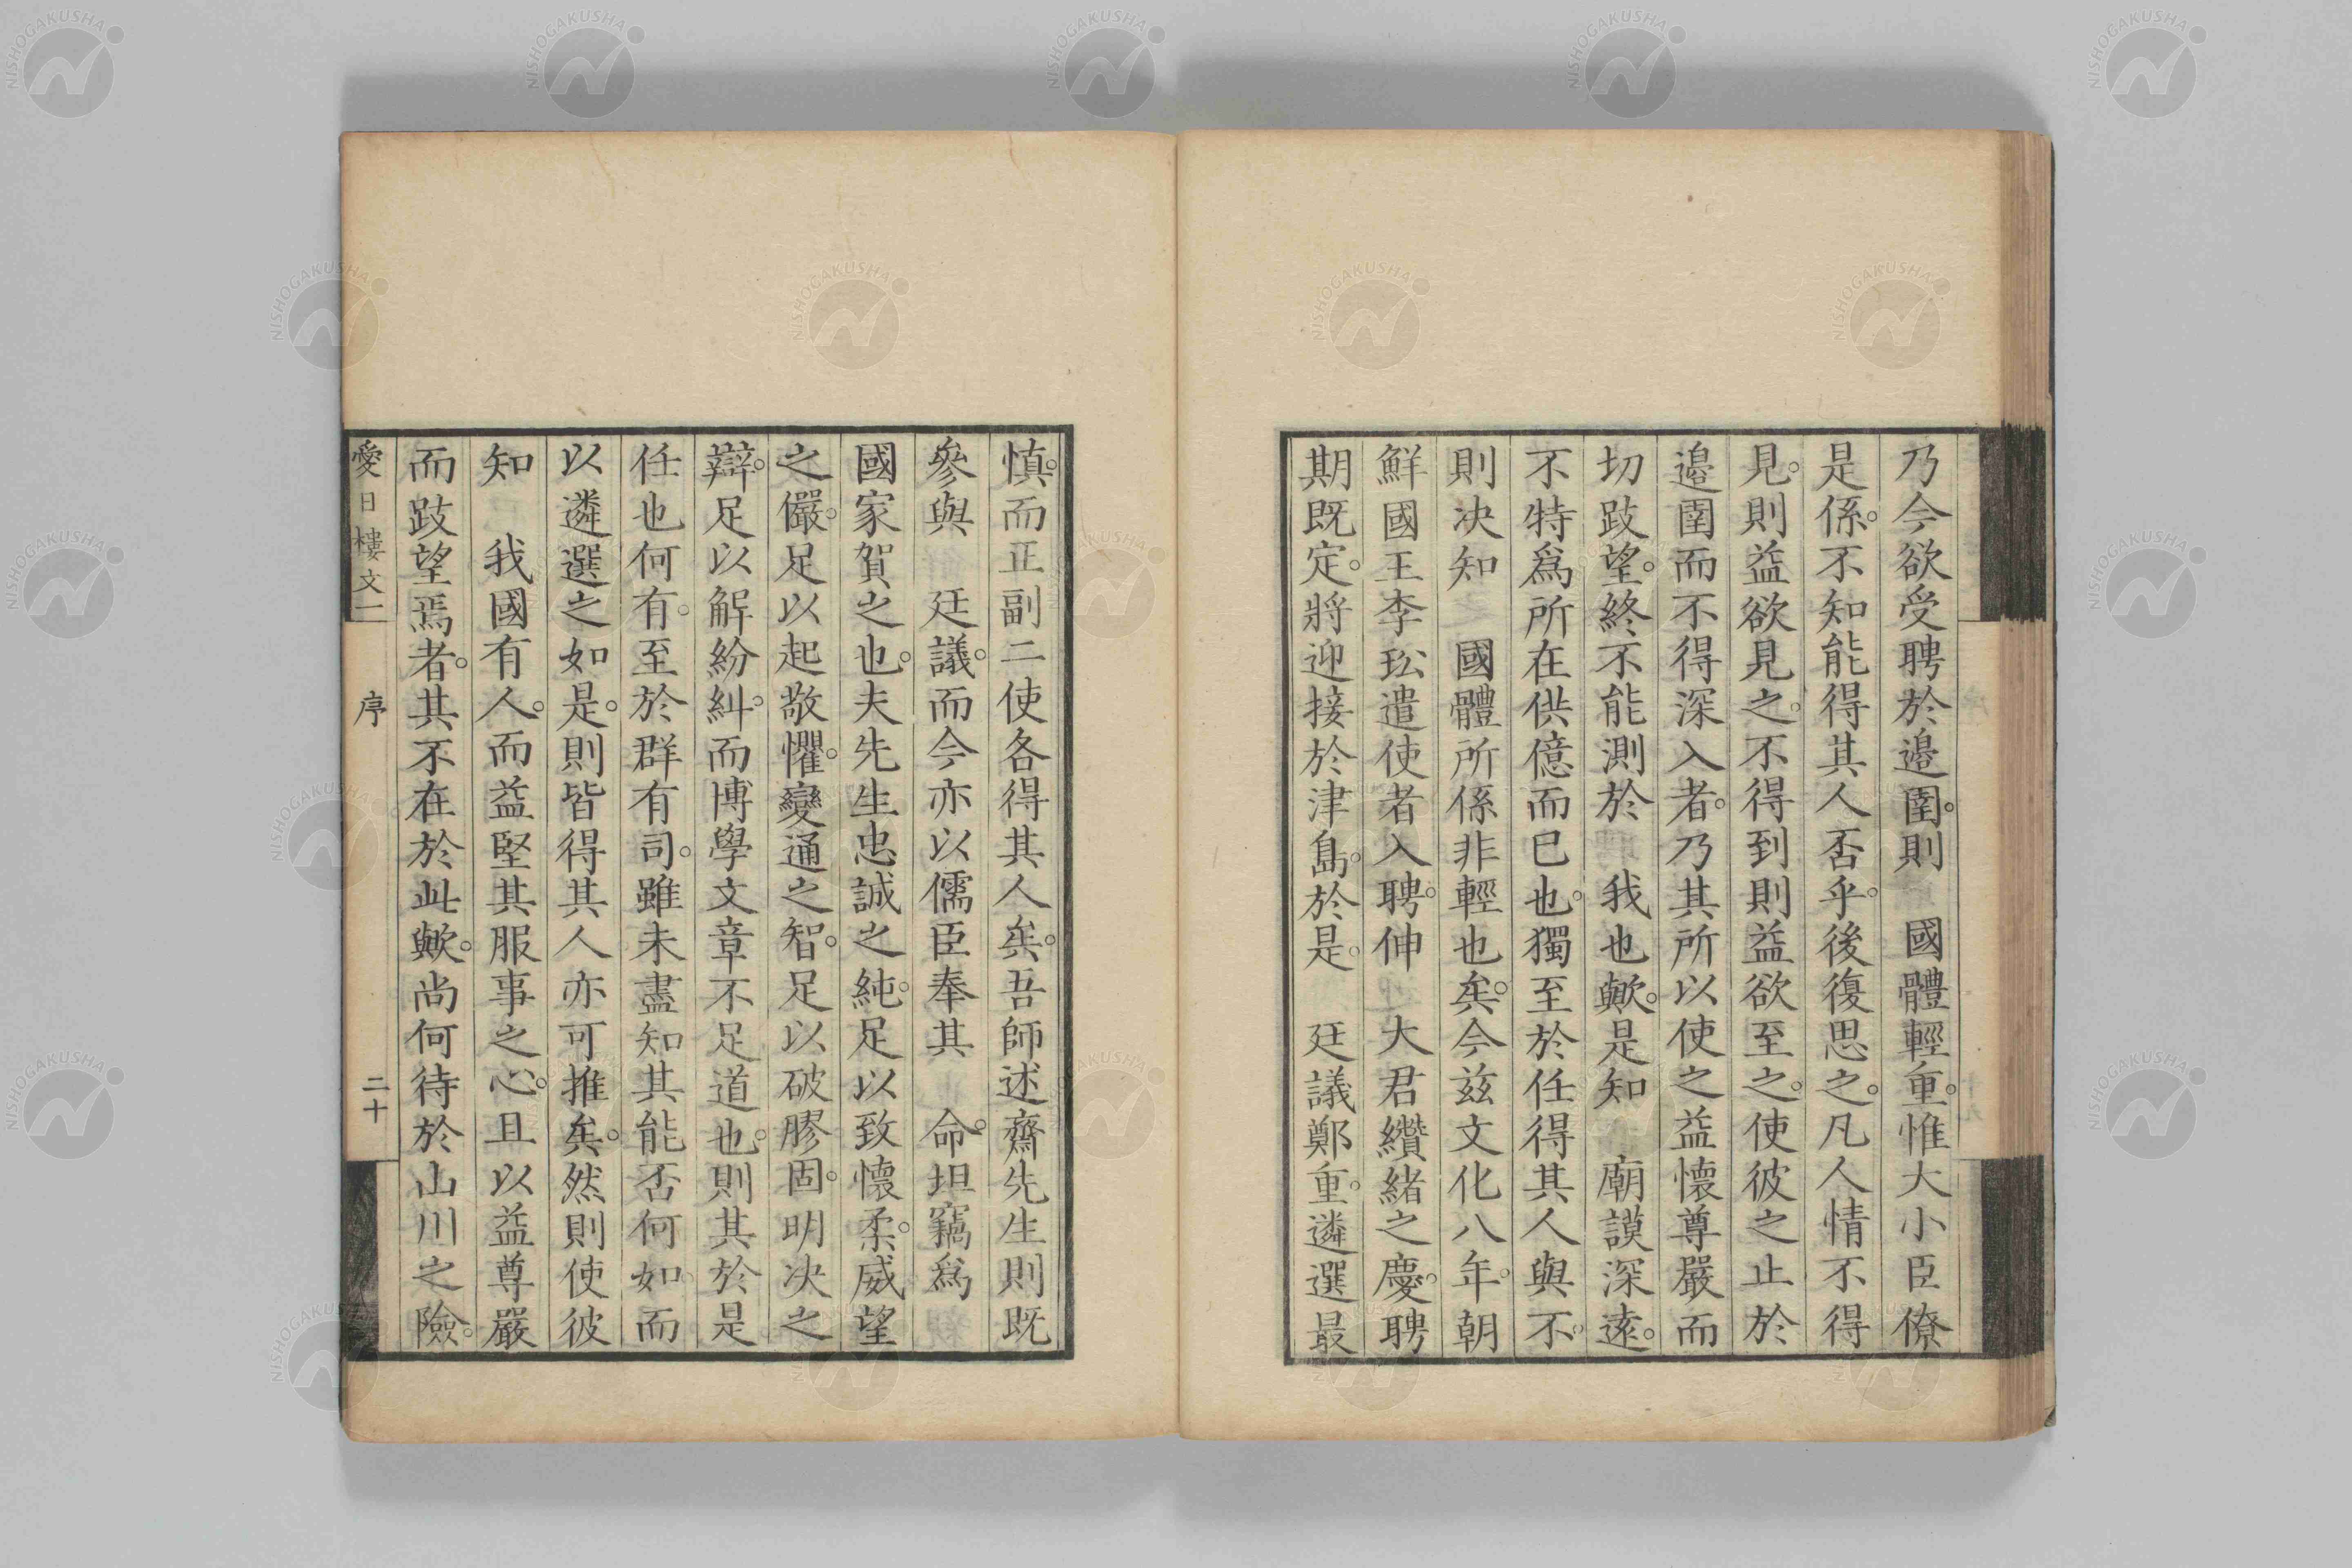 乃今欲受聘於邉圉。則　國體輕重。惟大小臣僚
是係。不知能得其人否乎。後復思之。凡人情不得
見。則益欲見之。不得到則益欲至之。使彼之止於
邉圉而不得深入者。乃其所以使之益懷尊嚴而
切跂望。終不能測於　我也歟。是知　廟謨深遠。
不特爲所在供億而已也。獨至於任得其人與不。
則决知　國體所係非輕也矣。今兹文化八年。朝
鮮國王李玜遣使者入聘。伸　大君纘緒之慶。聘
期既定。將迎接於津島。於是。　廷議鄭重。遴選最
慎。而正副二使各得其人矣。吾師述齋先生則既
參與　廷議。而今亦以儒臣奉其　命。坦竊爲
國家賀之也。夫先生忠誠之純。足以致懷柔。威望
之儼。足以起敬懼。變通之智。足以破膠固。明决之
辯。足以解紛糾。而博學文章不足道也。則其於是
任也何有。至於群有司。雖未盡知其能否何如。而
以遴選之如是。則皆得其人亦可推矣。然則使彼
知　我國有人。而益堅其服事之心。且以益尊嚴
而跂望焉者。其不在於此歟。尚何待於山川之險。
愛日樓文二　序　二十
NISHOGAKUSHA